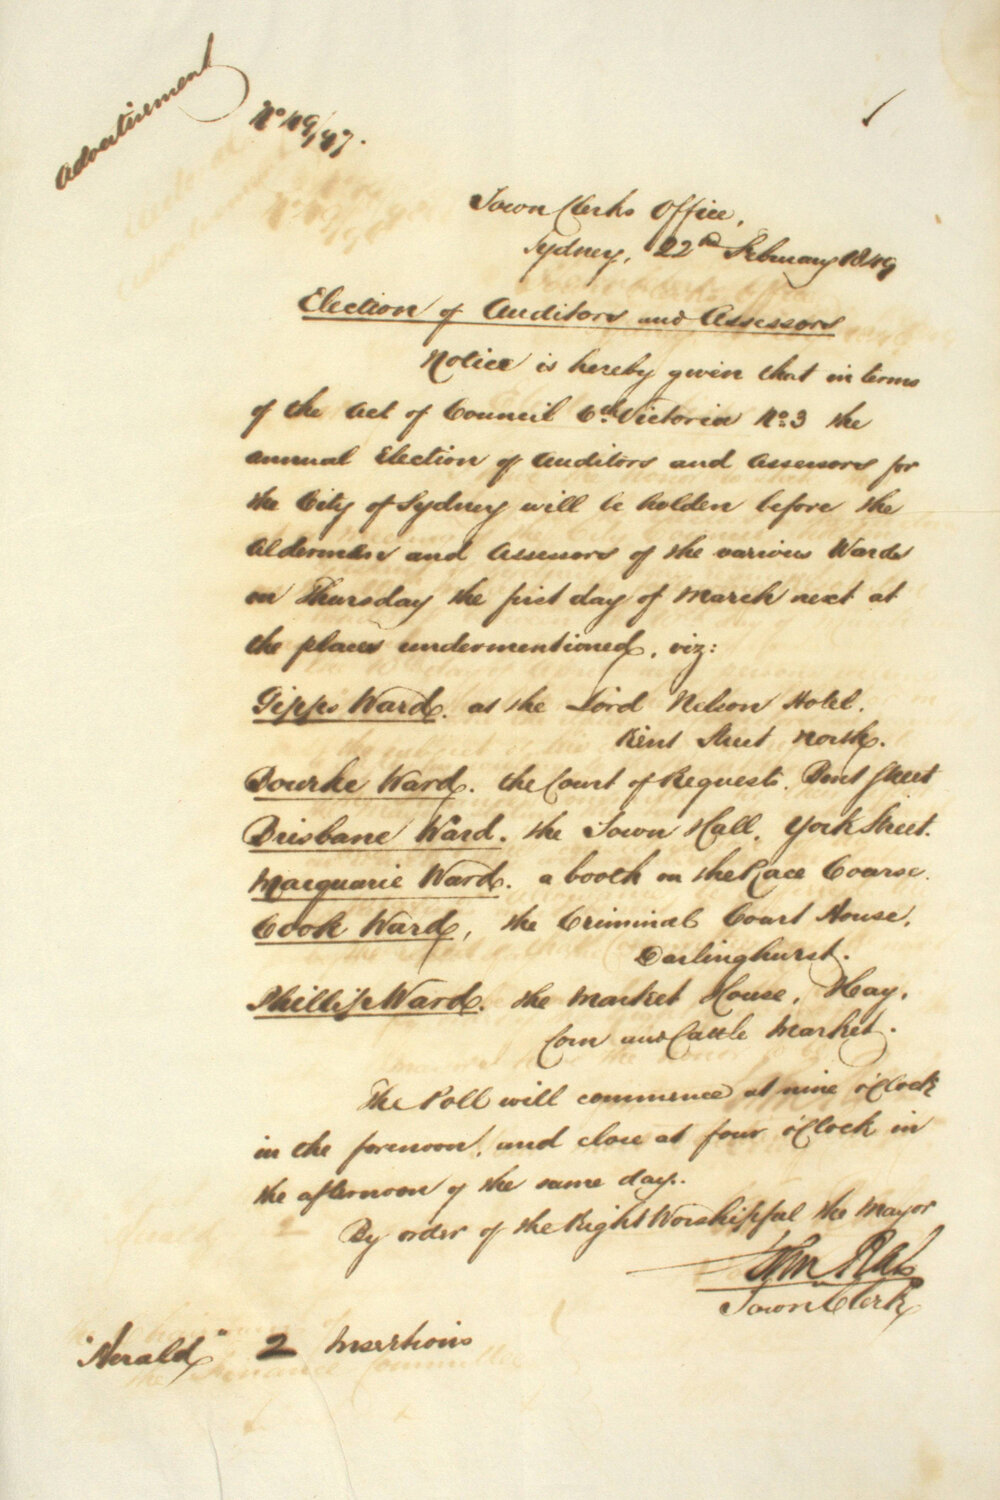 Advertisement
No 49/47.
Town Clerks Office,
Sydney, 22nd February 1849
Election of Auditors and Assessors
Notice is hereby given that in terms
of the Act of Council 6th Victoria No 3 the
annual Election of Auditors and Assessors for
the City of Sydney will be holden before the
Aldermen and Assessors of the various Wards
on Thursday the first day of March next at
the places undermentioned, viz:
Gipps Ward. at the Lord Nelson Hotel.
Kent Street North.
Bourke Ward. the Court of Requests. Bent Street
Brisbane Ward. the Town Hall, York Street.
Macquarie Ward. a booth on the Race Course.
Cook Ward, the Criminal Court House,
Darlinghurst.
Phillip Ward. the Market House, Hay,
Corn and Cattle Market.
The Poll will commence at nine o'Clock
in the forenoon, and close at four o'Clock in
the afternoon of the same day.
By order of the Right Worshipful the Mayor
Town Clerk
"Herald" 2 Insertions